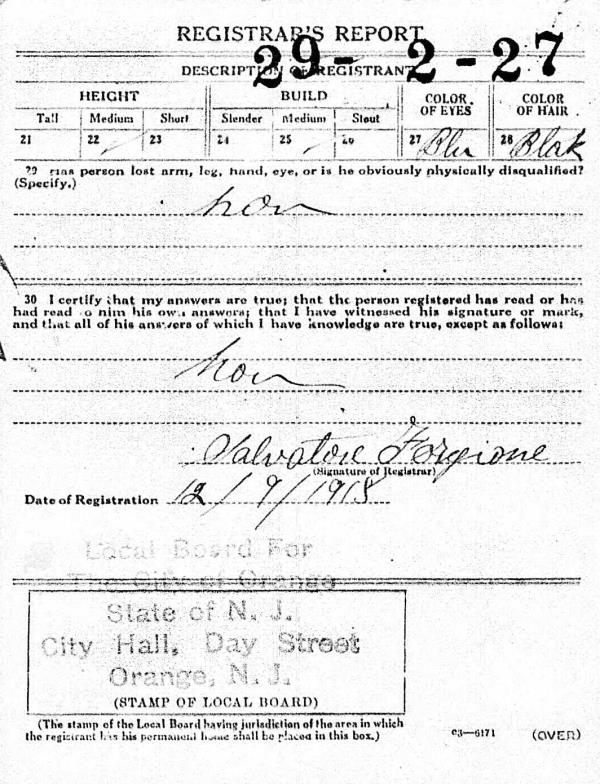 REGISTRAR'S REPORT
29-2-27
DESCRIPTION OF REGISTRANT
HEIGHT BUILD COLOR OF EYES COLOR OF HAIR
Tall Medium Short Slender Medium Stout
21 22 23 24 25 26 27 Blu 28 Blak
29 Has person lost arm, leg, hand, eye, or is he obviously physically disqualified?
(Specify.)
non
30 I certify that my answers are true; that the person registered has read or has
had read to him his own answers; that I have witnessed his signature or mark,
and that all of his answers of which I have knowledge are true, except as follows:
non
Salvatore Forgione
(Signature of Registrar)
Date of Registration 12/9/1918
Local Board For
The City of Orange
State of N. J.
City Hall, Day Street
Orange, N. J.
(STAMP OF LOCAL BOARD)
(The stamp of the Local Board having jurisdiction of the area in which
the registrant has his permanent home shall be placed in this box.)
03—6171 (OVER)